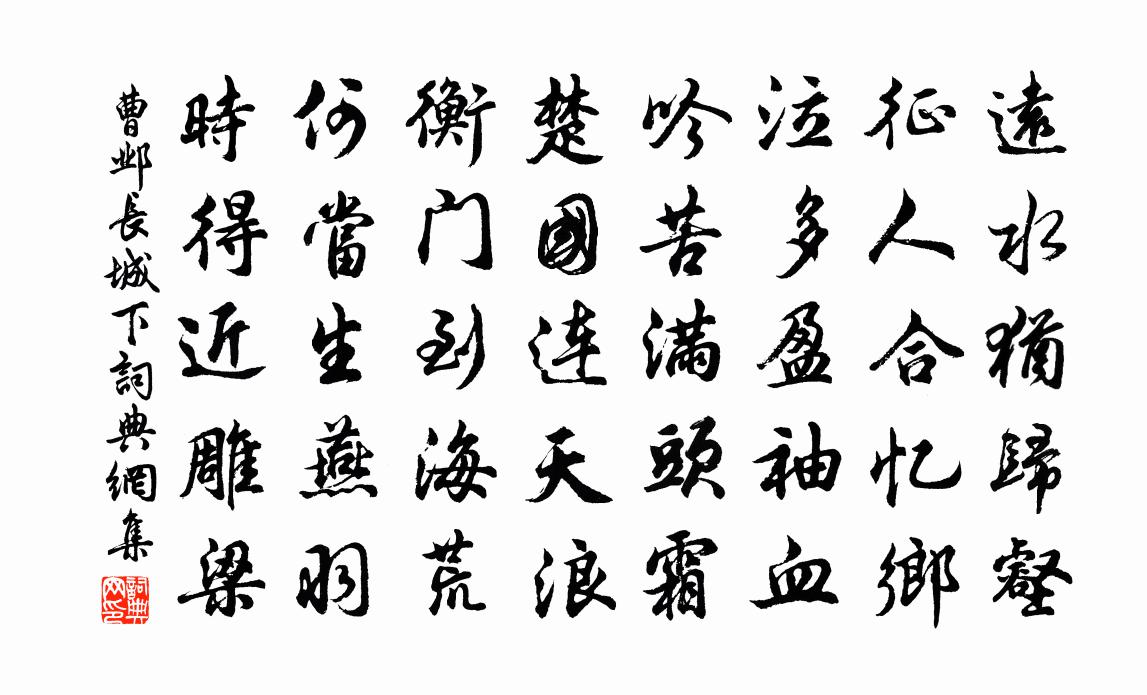 遠水猶歸壑
征人合忆鄉
泣多盈袖血
吟苦滿頭霜
楚國連天浪
衡门到海荒
何當生燕羽
時得近雕梁
曹邺長城下詞典網集
詞典網印